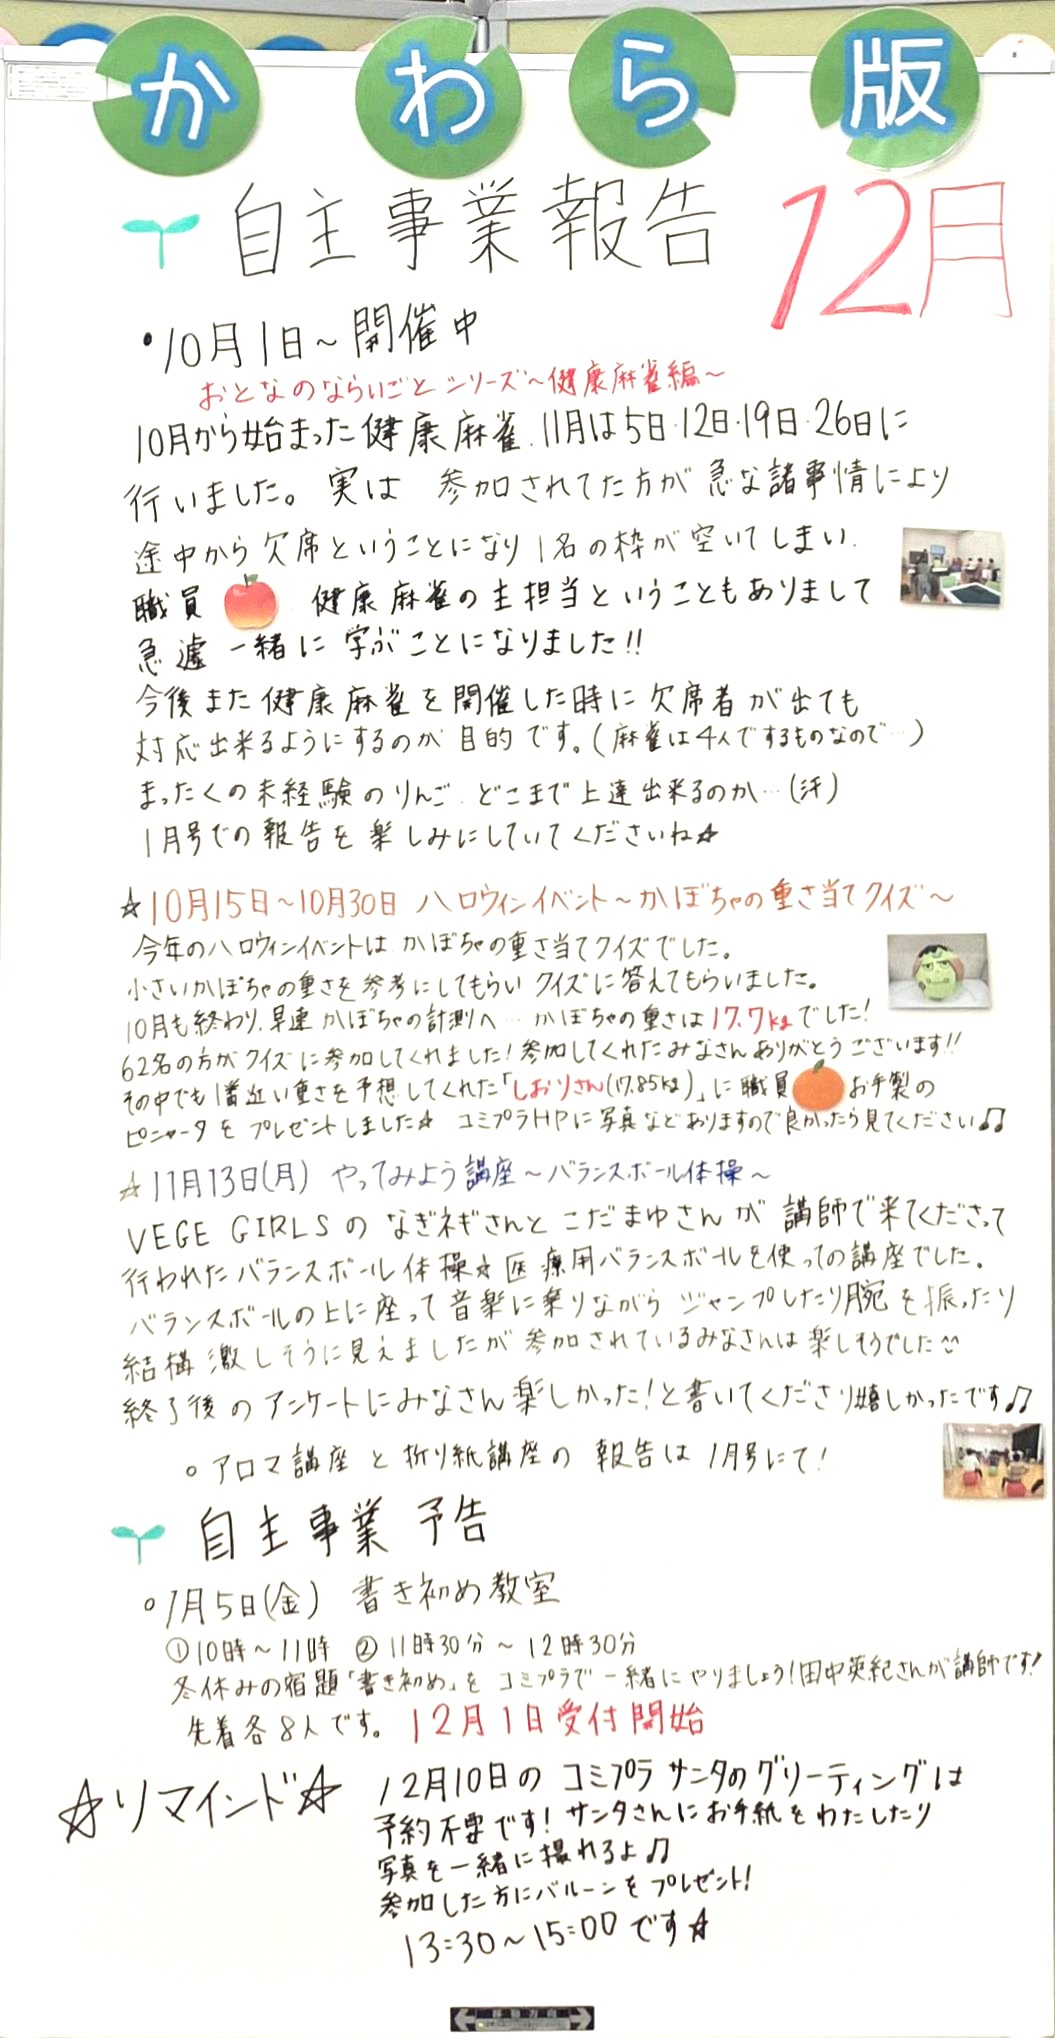 かわら版
自主事業報告
12月
・10月1日～開催中
おとなのならいごとシリーズ～健康麻雀編～
10月から始まった健康麻雀、11月は5日・12日・19日・26日に
行いました。実は 参加されてた方が急な諸事情により
途中から欠席ということになり1名の枠が空いてしまい、
職員 健康麻雀の主担当ということもありまして
急遽一緒に学ぶことになりました!!
今後また健康麻雀を開催した時に欠席者が出ても
対応出来るようにするのが目的です。(麻雀は4人でするものなので…)
まったくの未経験のりんご、どこまで上達出来るのか…(汗)
1月号での報告を楽しみにしていてくださいね☆
☆10月15日～10月30日 ハロウィンイベント～かぼちゃの重さ当てクイズ～
今年のハロウィンイベントはかぼちゃの重さ当てクイズでした。
小さいかぼちゃの重さを参考にしてもらいクイズに答えてもらいました。
10月も終わり、早速かぼちゃの計測へ…かぼちゃの重さは17.7kgでした!
62名の方がクイズに参加してくれました!参加してくれたみなさんありがとうございます!!
その中でも1番近い重さを予想してくれた「しおりさん(17.85kg)」に職員 お手製の
ピニャータをプレゼントしました☆ コミプラHPに写真などありますので良かったら見てください♫
☆11月13日(月) やってみよう講座～バランスボール体操～
VEGE GIRLSのなぎネギさんとこだまゆさんが講師で来てくださって
行われたバランスボール体操☆医療用バランスボールを使っての講座でした。
バランスボールの上に座って音楽に乗りながらジャンプしたり腕を振ったり
結構激しそうに見えましたが参加されているみなさんは楽しそうでした
終了後のアンケートにみなさん楽しかった!と書いてくださり嬉しかったです♫
○アロマ講座と折り紙講座の報告は1月号にて!
自主事業予告
○1月5日(金) 書き初め教室
①10時～11時 ②11時30分～12時30分
冬休みの宿題「書き初め」をコミプラで一緒にやりましょう!田中英紀さんが講師です!
先着各8人です。12月1日受付開始
☆リマインド☆
12月10日のコミプラサンタのグリーティングは
予約不要です!サンタさんにお手紙をわたしたり
写真を一緒に撮れるよ♫
参加した方にバルーンをプレゼント!
13:30～15:00です☆
移動方向